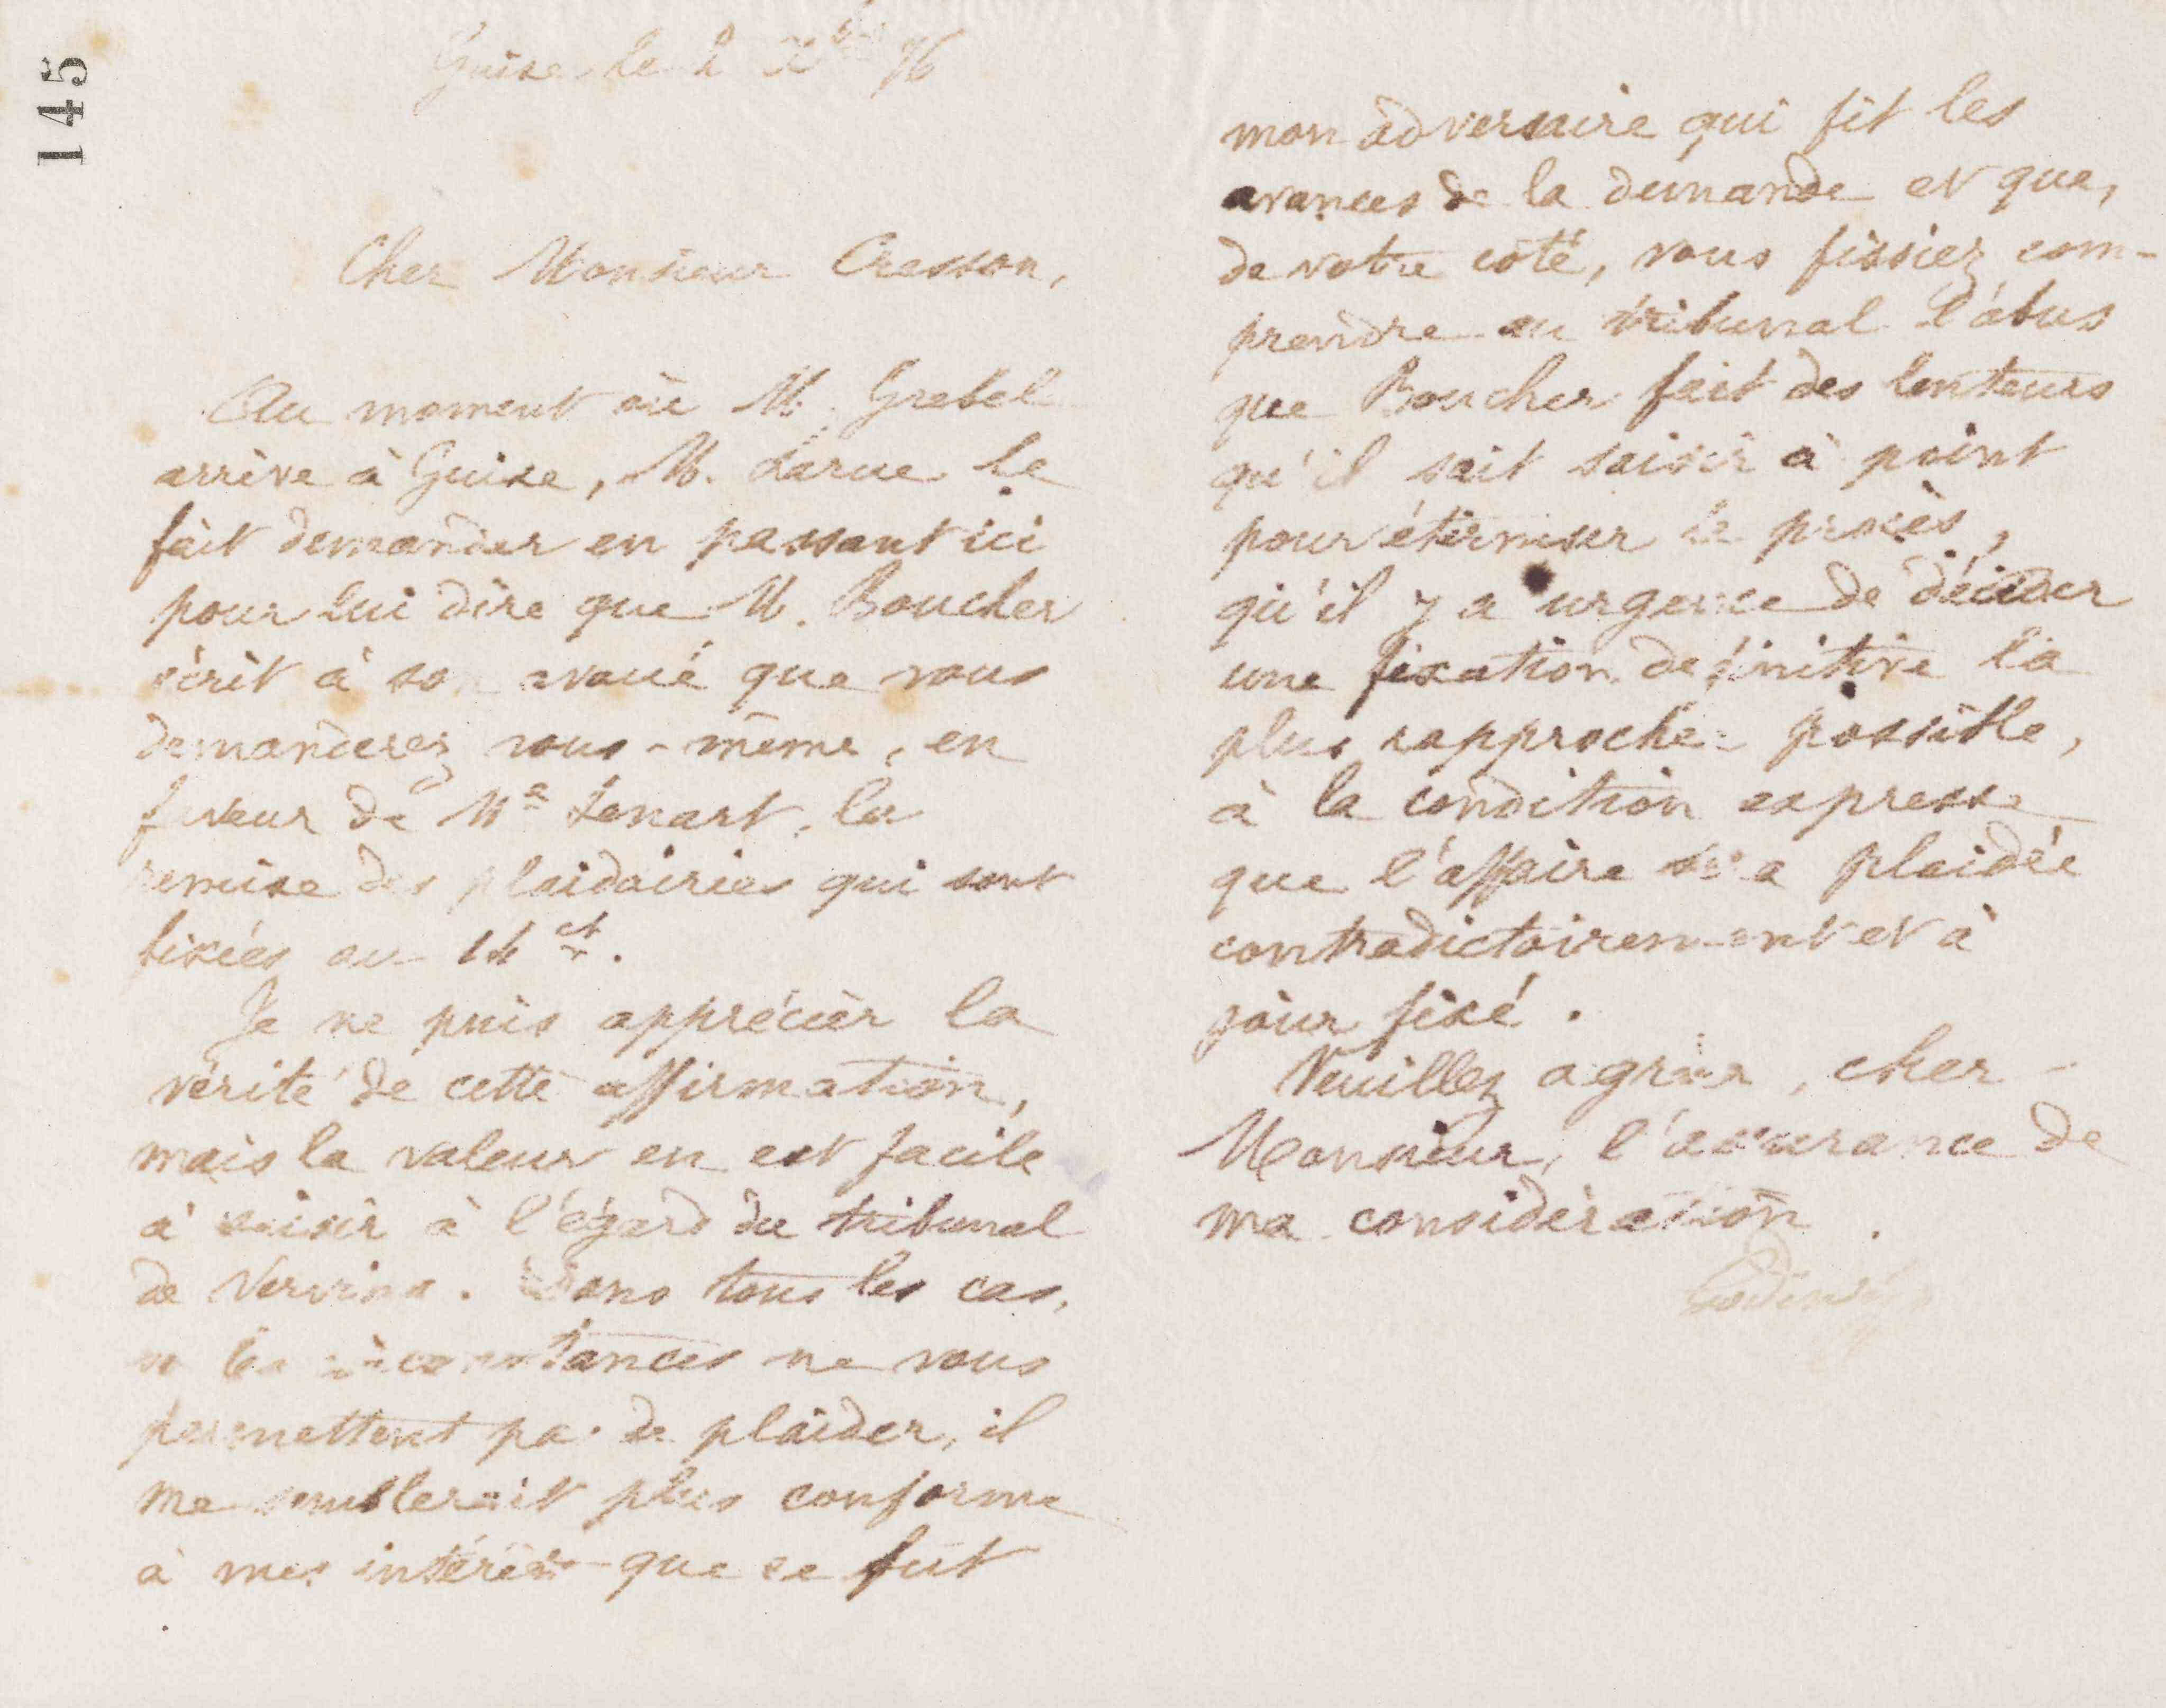 145
Guise le 2 Xbre 76
Cher Monsieur Cresson,
Au moment où M. Grebel
arrive à Guise, M. Larue le
fait demander en passant ici
pour lui dire que M. Boucher
écrit à son avoué que vous
demanderez vous-même, en
faveur de Me Lenart, la
remise des plaidoiries qui sont
fixées au 14 ct.
Je ne puis apprécier la
vérité de cette affirmation,
mais la valeur en est facile
à saisir à l'égard du tribunal
de Vervins. Dans tous les cas,
si les circonstances ne vous
permettent pas de plaider, il
me semblerait plus conforme
à mes intérêts que ce fut
mon adversaire qui fit les
avances de la demande et que,
de votre côté, vous fissiez com-
prendre au tribunal l'abus
que Boucher fait des lenteurs
qu'il sait saisir à point
pour éterniser le procès,
qu'il y a urgence de décider
une fixation définitive la
plus rapprochée possible,
à la condition expresse
que l'affaire sera plaidée
contradictoirement et à
jour fixé.
Veuillez agréer, cher
Monsieur, l'assurance de
ma considération.
Godin